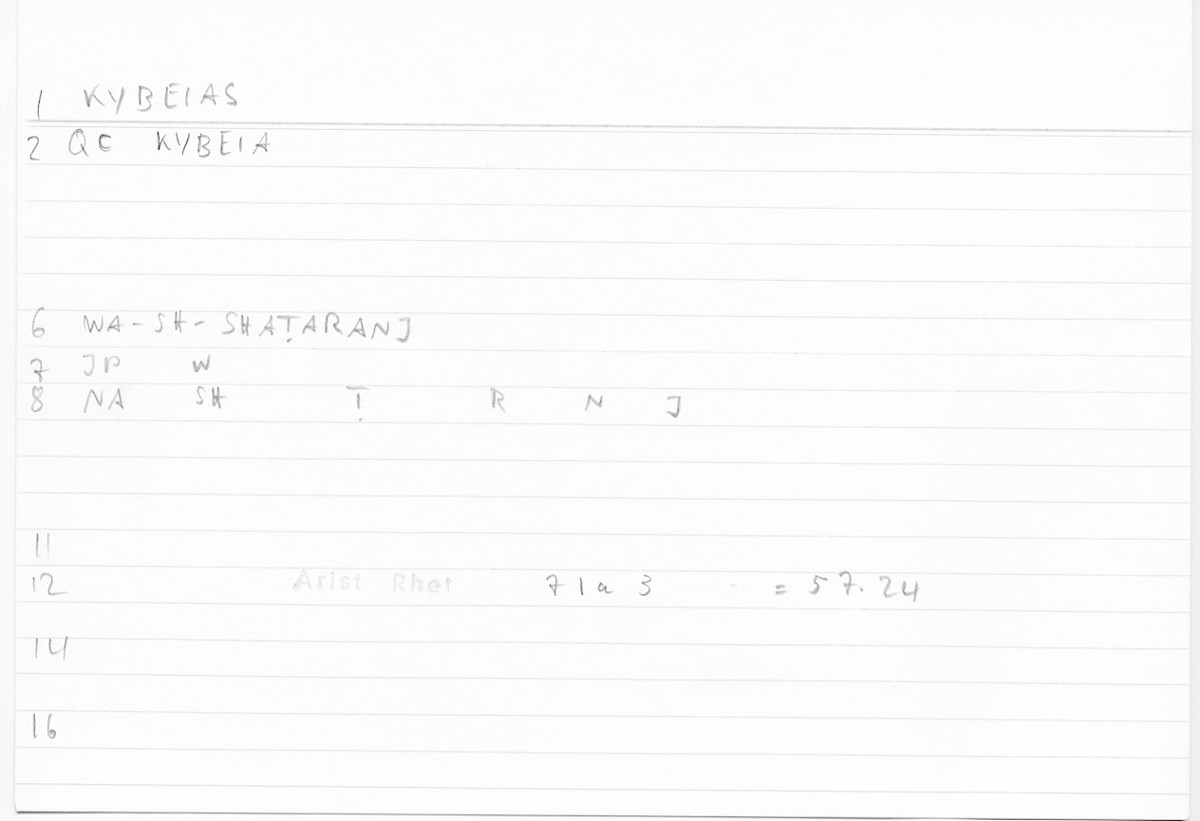 1 KYBEIAS
2 QC KYBEIA
6 WA-SH-SHAṬARANJ
7 JP W
8 NA SH Ṭ R N J
11
12 Arist Rhet 71a3 = 57.24
14
16